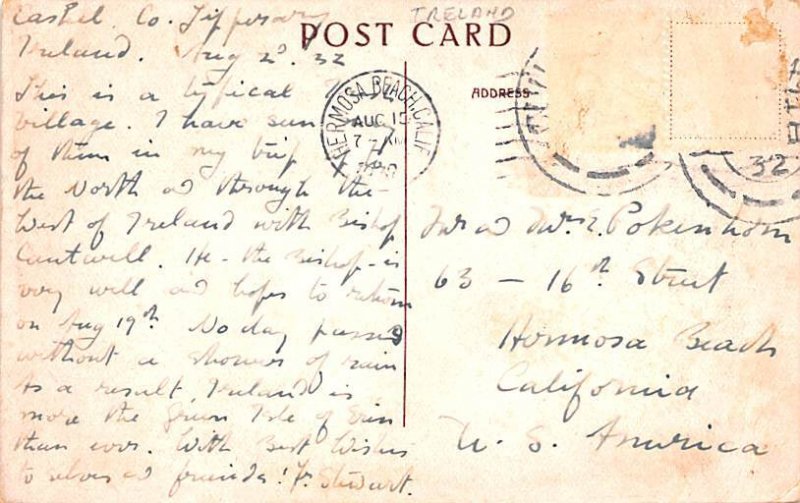 IRELAND
POST CARD
ADDRESS
HERMOSA BEACH, CALIF
AUG 15
7
32
Cashel. Co. Tipperary
Ireland. Aug 2º. 32
This is a typical
Village. I have seen
of them in my trip
the North ad through the
West of Ireland with Bishop
Cantwell. He - the Bishop - is
very well and hopes to return
on Aug 19th. No day passes
without a shower of rain
As a result, Ireland is
more the Green Isle of Erin
than ever. With Best Wishes
to selves ad friends! Fr. Stewart.
Mr ad Mrs. E. Pokenhorn
63 - 16th Street
Hermosa Beach
California
U. S. America